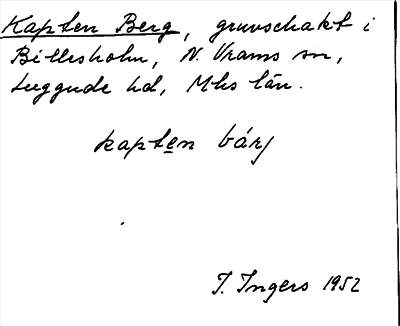 Kapten Berg, gruvschakt i
Billesholm, N. Vrams sn,
Luggude hd, Mhs län.
kapten bárj
I. Ingers 1952